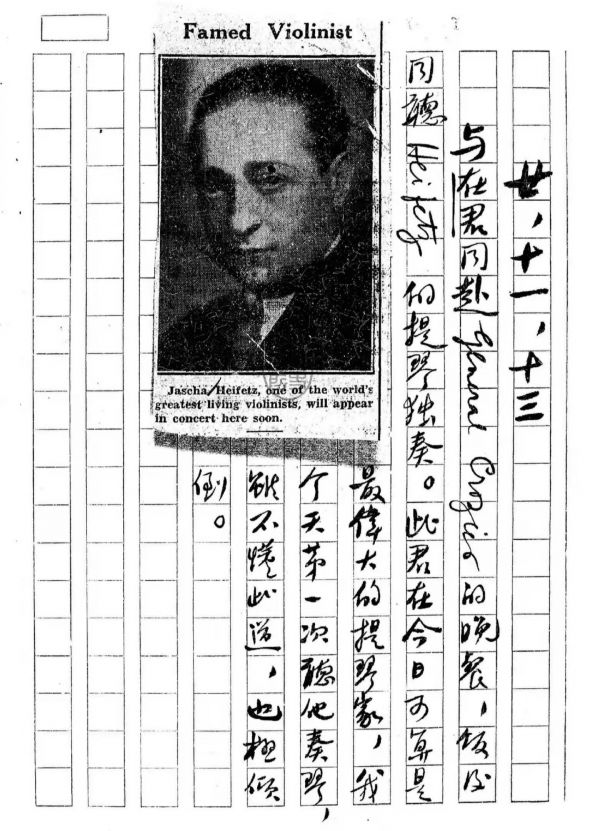 Famed Violinist
Jascha Heifetz, one of the world's
greatest living violinists, will appear
in concert here soon.
廿,十一,十三
与在君同赴 General Crozier 的晚餐,饭后
同聽 Heifetz 的提琴独奏。此君在今日可算是
最偉大的提琴家,我
今天第一次聽他奏琴,
雖不懂此道,也極傾
倒。